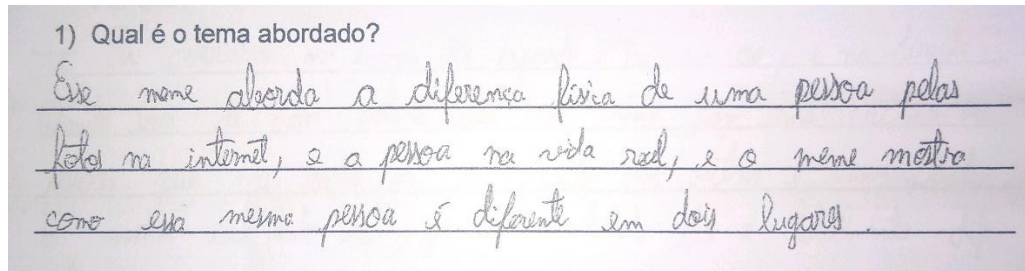 1) Qual é o tema abordado?
Esse meme aborda a diferença física de uma pessoa pelas
fotos na internet, e a pessoa na vida real, e o meme mostra
como essa mesma pessoa é diferente em dois lugares.